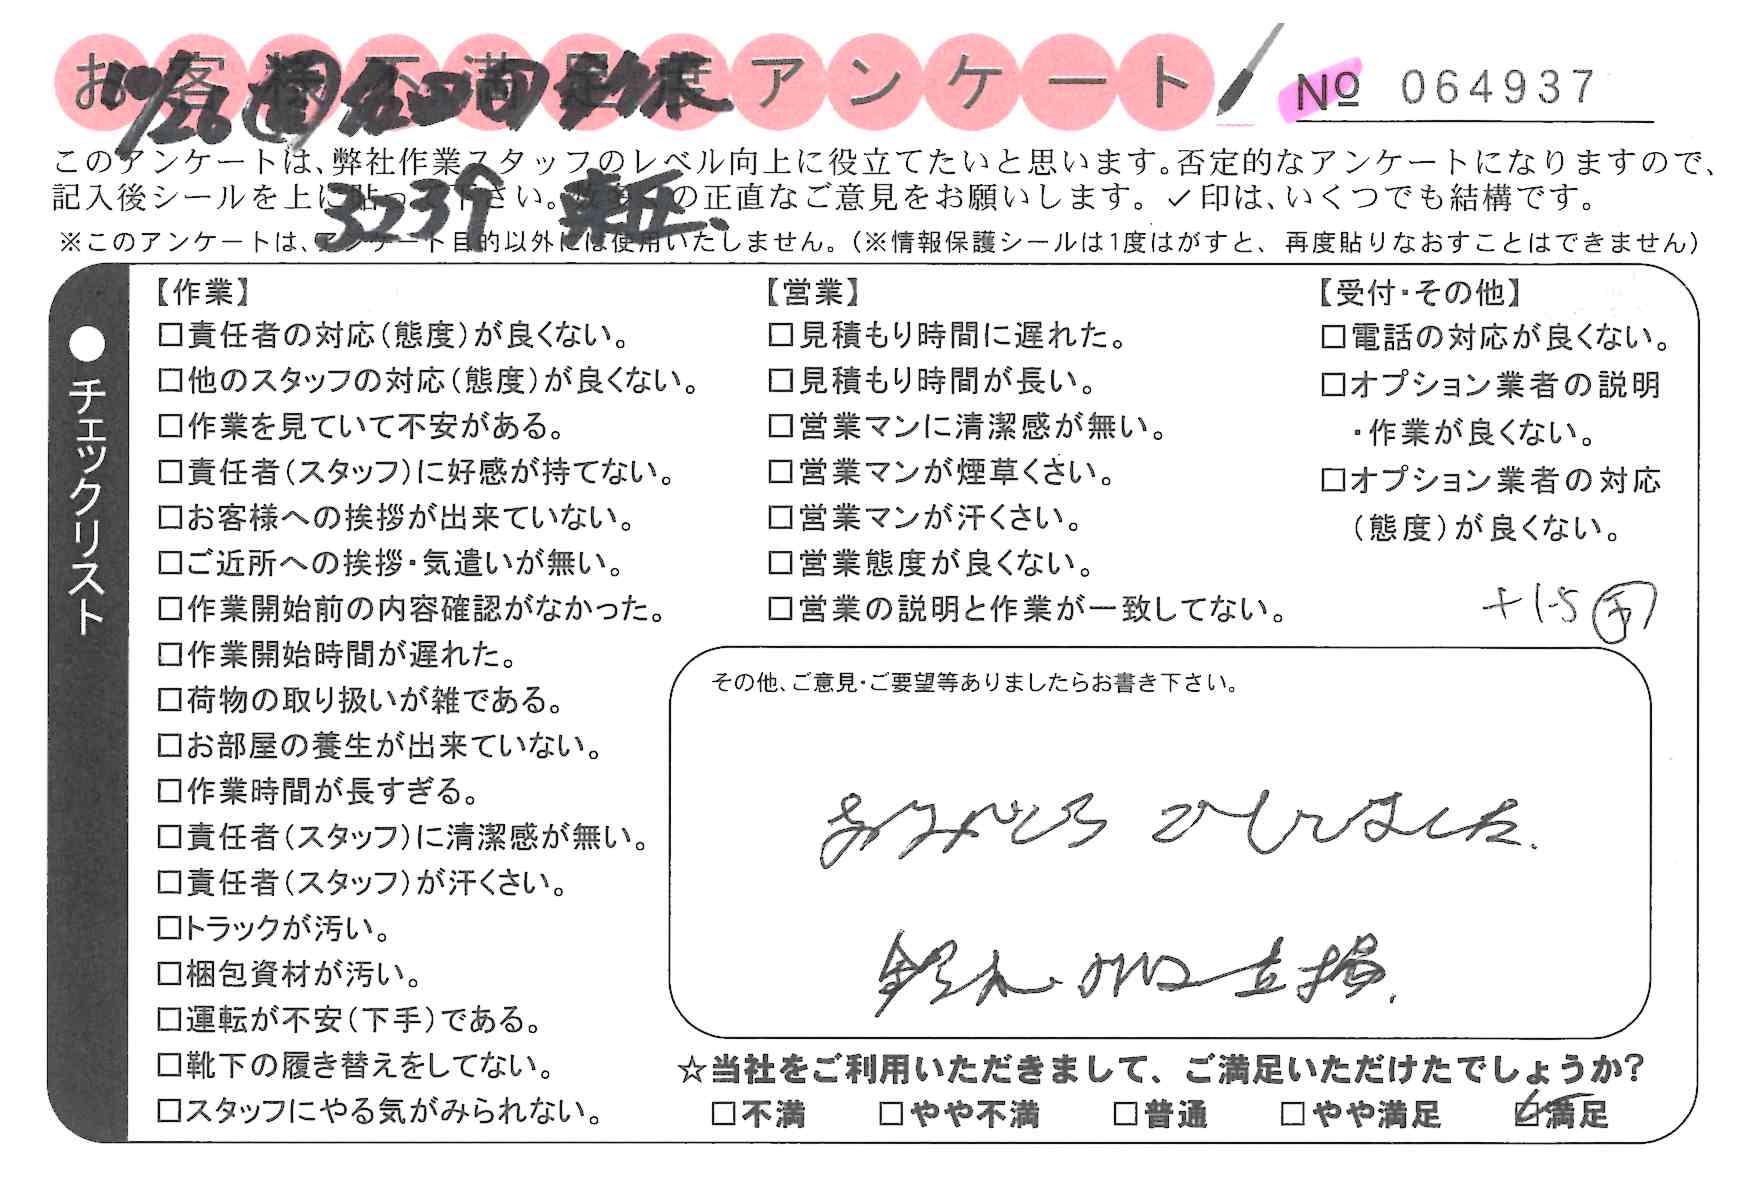 お客様不満足度アンケート
No 064937
このアンケートは、弊社作業スタッフのレベル向上に役立てたいと思います。否定的なアンケートになりますので、
記入後シールを上に貼って下さい。の正直なご意見をお願いします。✓印は、いくつでも結構です。
3239
※このアンケートは、アンケート目的以外には使用いたしません。（※情報保護シールは1度はがすと、再度貼りなおすことはできません）
●チェックリスト
【作業】
□責任者の対応（態度）が良くない。
□他のスタッフの対応（態度）が良くない。
□作業を見ていて不安がある。
□責任者（スタッフ）に好感が持てない。
□お客様への挨拶が出来ていない。
□ご近所への挨拶・気遣いが無い。
□作業開始前の内容確認がなかった。
□作業開始時間が遅れた。
□荷物の取り扱いが雑である。
□お部屋の養生が出来ていない。
□作業時間が長すぎる。
□責任者（スタッフ）に清潔感が無い。
□責任者（スタッフ）が汗くさい。
□トラックが汚い。
□梱包資材が汚い。
□運転が不安（下手）である。
□靴下の履き替えをしてない。
□スタッフにやる気がみられない。
【営業】
□見積もり時間に遅れた。
□見積もり時間が長い。
□営業マンに清潔感が無い。
□営業マンが煙草くさい。
□営業マンが汗くさい。
□営業態度が良くない。
□営業の説明と作業が一致してない。
【受付・その他】
□電話の対応が良くない。
□オプション業者の説明
・作業が良くない。
□オプション業者の対応
（態度）が良くない。
+1.5
その他、ご意見・ご要望等ありましたらお書き下さい。
ありがとうございました.
☆当社をご利用いただきまして、ご満足いただけたでしょうか?
□不満 □やや不満 □普通 □やや満足 ☑満足